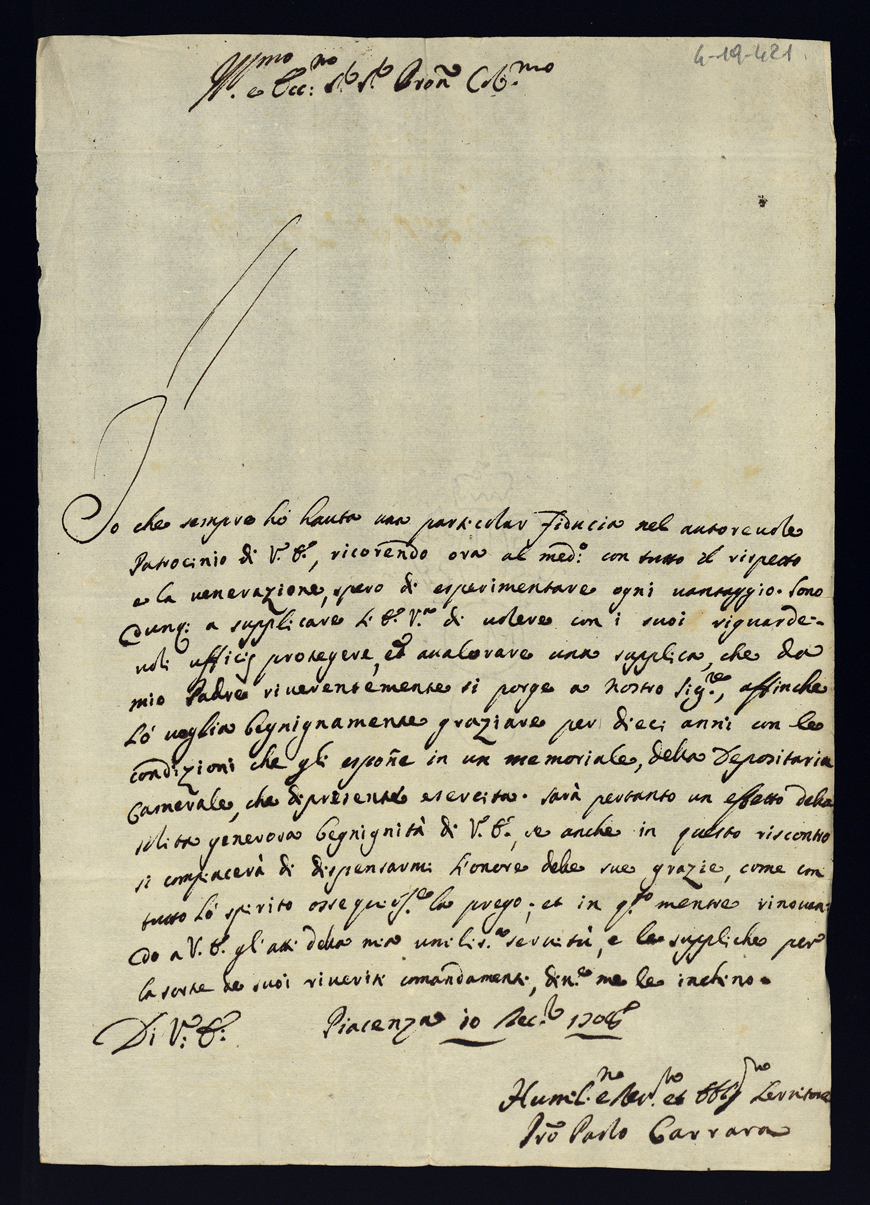 4-19-421
Ill.mo e Ecc.mo Sig.r Sig.r Pron Col.mo
Io che sempre hò hauta una particolar fiducia nel autoreuole
Patrocinio di V.E., ricorendo ora al med.o con tutto il rispetto
e la venerazione, spero di esperimentare ogni vantaggio. Sono
dunq. a supplicare L'E.V. di uolere con i suoi riguarde-
uoli ufficij protegere, et aualorare una supplica, che da
mio Padre riuerentemente si porge a Nostro Sig.re, affinche
Lò voglia begnignamente graziare per dieci anni con le
condizioni che gli espone in un memoriale, della Depositaria
Camerale, che dipresente esercita. Sarà pertanto un effetto della
solita generosa begnignità di V.E., se anche in questo riscontro
si compiacerà di dispensarmi l'onore delle sue grazie, come con
tutto Lò spirito ossequios.e la prego; et in q.to mentre rinouan-
do a V.E. gl'atti della mia umilis.a seruitù, e le suppliche per
la sorte de suoi riueriti comandamenti, me le inchino.
Di V.E. Piacenza 10 Dec. 1708
Humil.mo e Deu.mo et Obblig.mo Seruitore
Pro Paolo Carrara